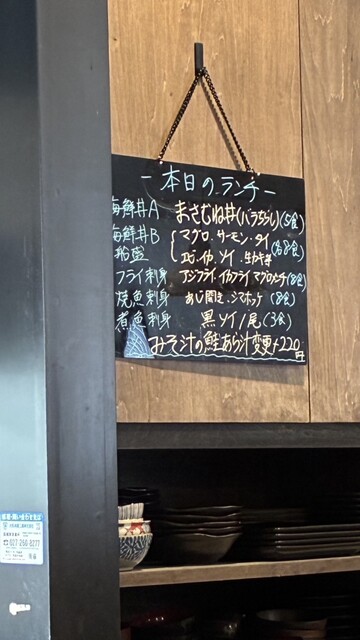 - 本日のランチ -
海鮮丼A まさむね丼(バラちらし)(5食)
海鮮丼B マグロ・サーモン・タイ
船盛 エビ・イカ・ソイ・生カキ (各8食)
フライ刺身 アジフライ・イカフライ マグロメンチ(8食)
焼魚刺身 あじ開き・シマホッケ (8食)
煮魚刺身 黒ソイ1尾 (3食)
みそ汁の鮭あら汁変更+220円